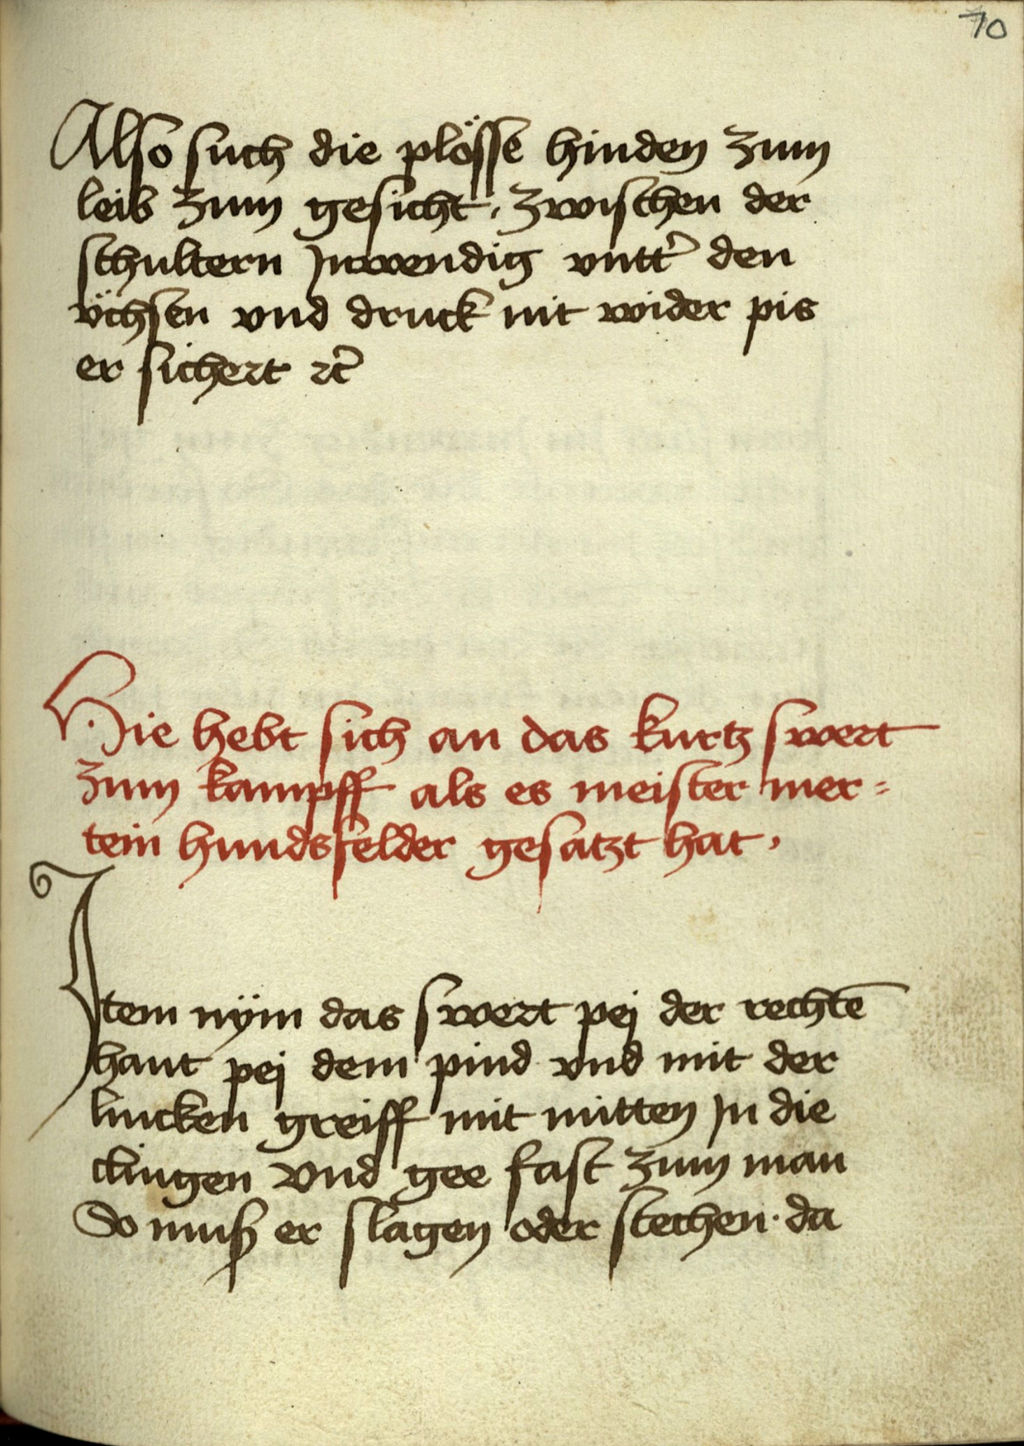 70
Also such die plösse hinden zum
leib zum gesicht, zwischen der
schultern Inwendig vntt̾ den
v̈chsen vnd druck nit wider pis
er sichert ꝛc̾
Hie hebt sich an das kurtz swert
zum kampff als es meister mer=
tein hundsfelder gesatzt hat,
Item nÿm das swert pej der rechtē
hant pej dem pind vnd mit der
lincken greiff mit mitten In die
clingen vnd gee fast zum man
So muß er slagen oder stechen · da